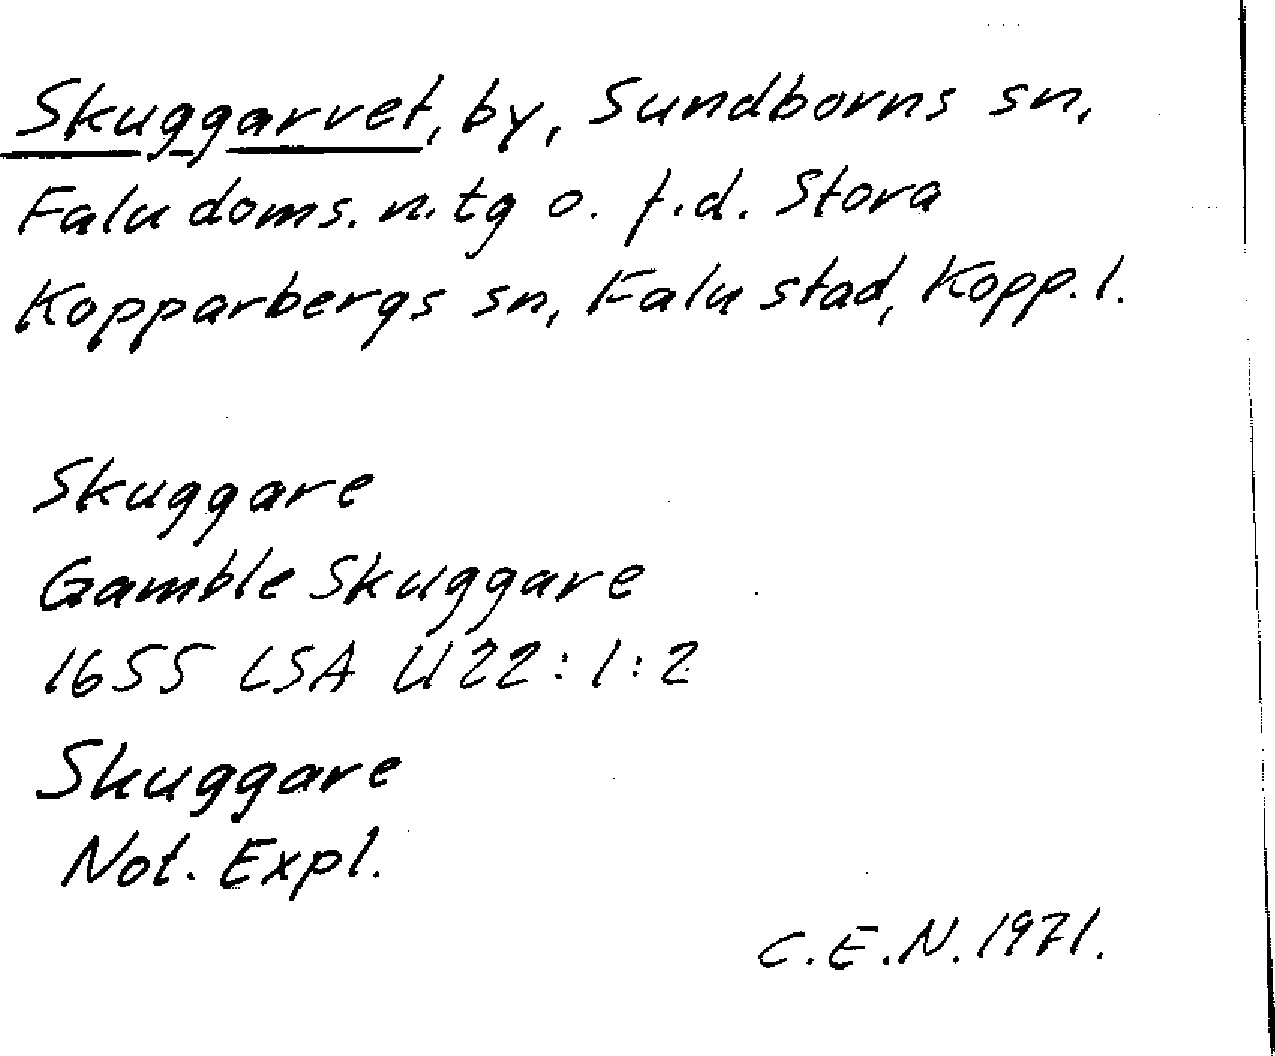 Skuggarvet, by, Sundborns sn,
Falu doms. n. tg o. f.d. Stora
Kopparbergs sn, Falu stad, Kopp. l.
Skuggare
Gamble Skuggare
1655 LSA U22:1:2
Skuggare
Not. Expl.
C.E.N. 1971.